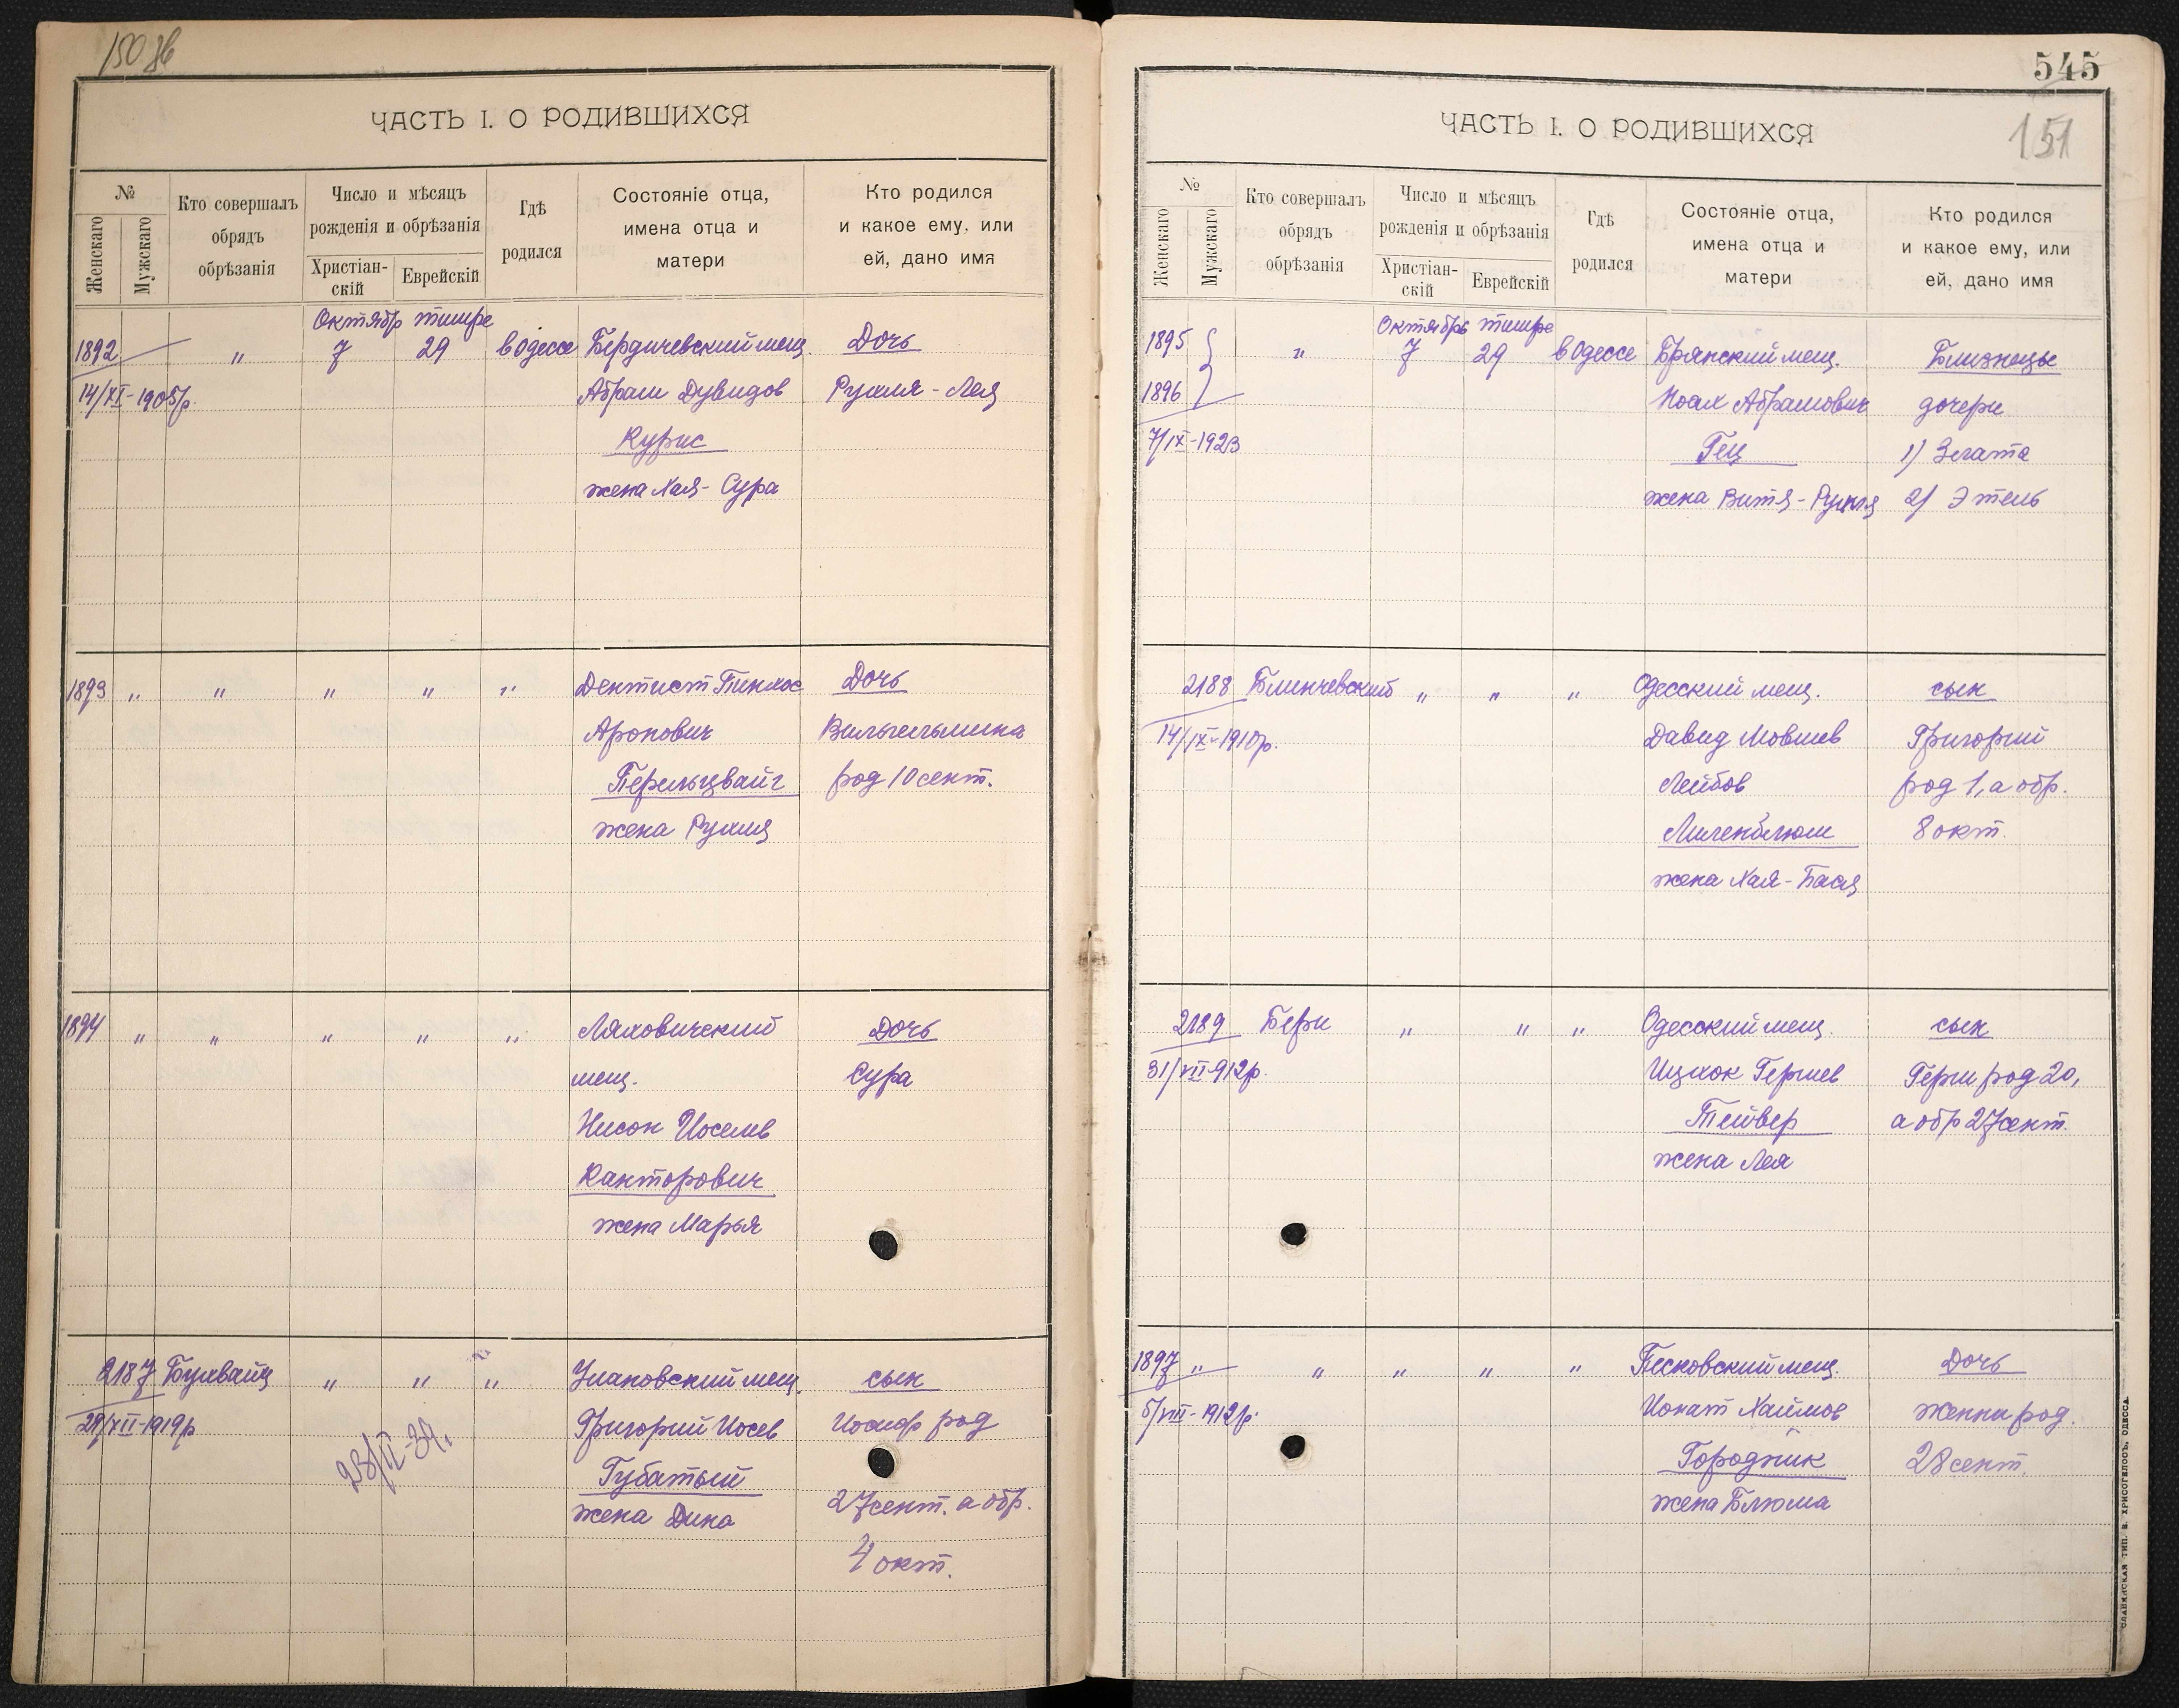 150 об
ЧАСТЬ I. О РОДИВШИХСЯ
№
Женскаго
Мужскаго
Кто совершалъ
обрядъ
обрѣзанія
Число и мѣсяцъ
рожденія и обрѣзанія
Христіан-
скій
Еврейскій
Гдѣ
родился
Состояніе отца,
имена отца и
матери
Кто родился
и какое ему, или
ей, дано имя
Октябрь тишре
1892 " 7 29 в Одессе Бердичевский мещ. Дочь
14/XI-1905р. Абрам Дувидов Рухля-Лея
Курис
жена Хая-Сура
1893 " " " " " Дентист Пинхос Дочь
Аронович Вильгельмина
Перельцвайг род 10 сент.
жена Рухля
1894 " " " " " Ляховичский Дочь
мещ. Сура
Нисон Иоселев
Канторович
жена Марья
2187 Бухвайц " " " Улановский мещ. сын
29/XII-1919р Григорий Иосев Иосиф род
23/II-39г.
Губатый 27 сент. а обр.
жена Дина
4 окт.
545
151
ЧАСТЬ I. О РОДИВШИХСЯ
№
Женскаго
Мужскаго
Кто совершалъ
обрядъ
обрѣзанія
Число и мѣсяцъ
рожденія и обрѣзанія
Христіан-
скій
Еврейскій
Гдѣ
родился
Состояніе отца,
имена отца и
матери
Кто родился
и какое ему, или
ей, дано имя
Октябрь тишре
1895 " 7 29 в Одессе Брянский мещ. Близнецы
1896 Ноах Абрамович дочери
7/IX-1923 Гец 1) Злата
жена Витя-Рухля 2) Этель
2188 Блинчевский " " " Одесский мещ. сын
14/IX-1910р. Давид Мовшев Григорий
Лейбов род 1, а обр.
Лиленблюм 8 окт.
жена Хая-Бася
2189 Бери " " " Одесский мещ. сын
31/VII-912р. Ицхок Гершев Герш род 20,
Тейвер а обр 27 сент.
жена Лея
1897 " " " " " Песковский мещ. Дочь
5/VIII-1912р. Ионат Хаимов женни род.
Городник 28 сент.
жена Блюма
СЛАВЯНСКАЯ ТИП. Н. ХРИСОГЕЛОСЪ, ОДЕССА.